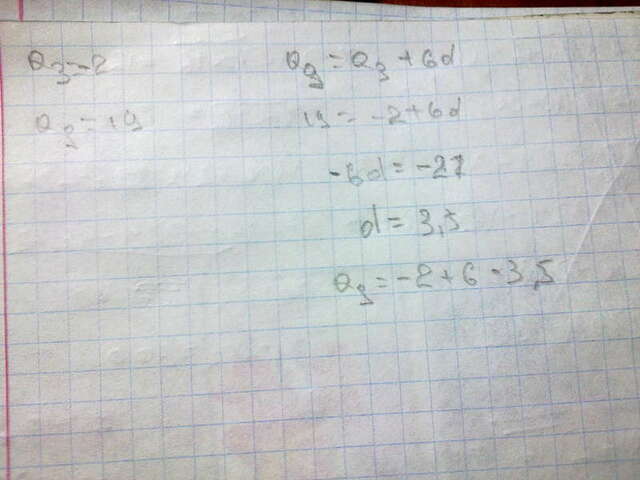 a₃=-2
a₉=19
a₉=a₃+6d
19=-2+6d
-6d=-21
d=3,5
a₉=-2+6·3,5